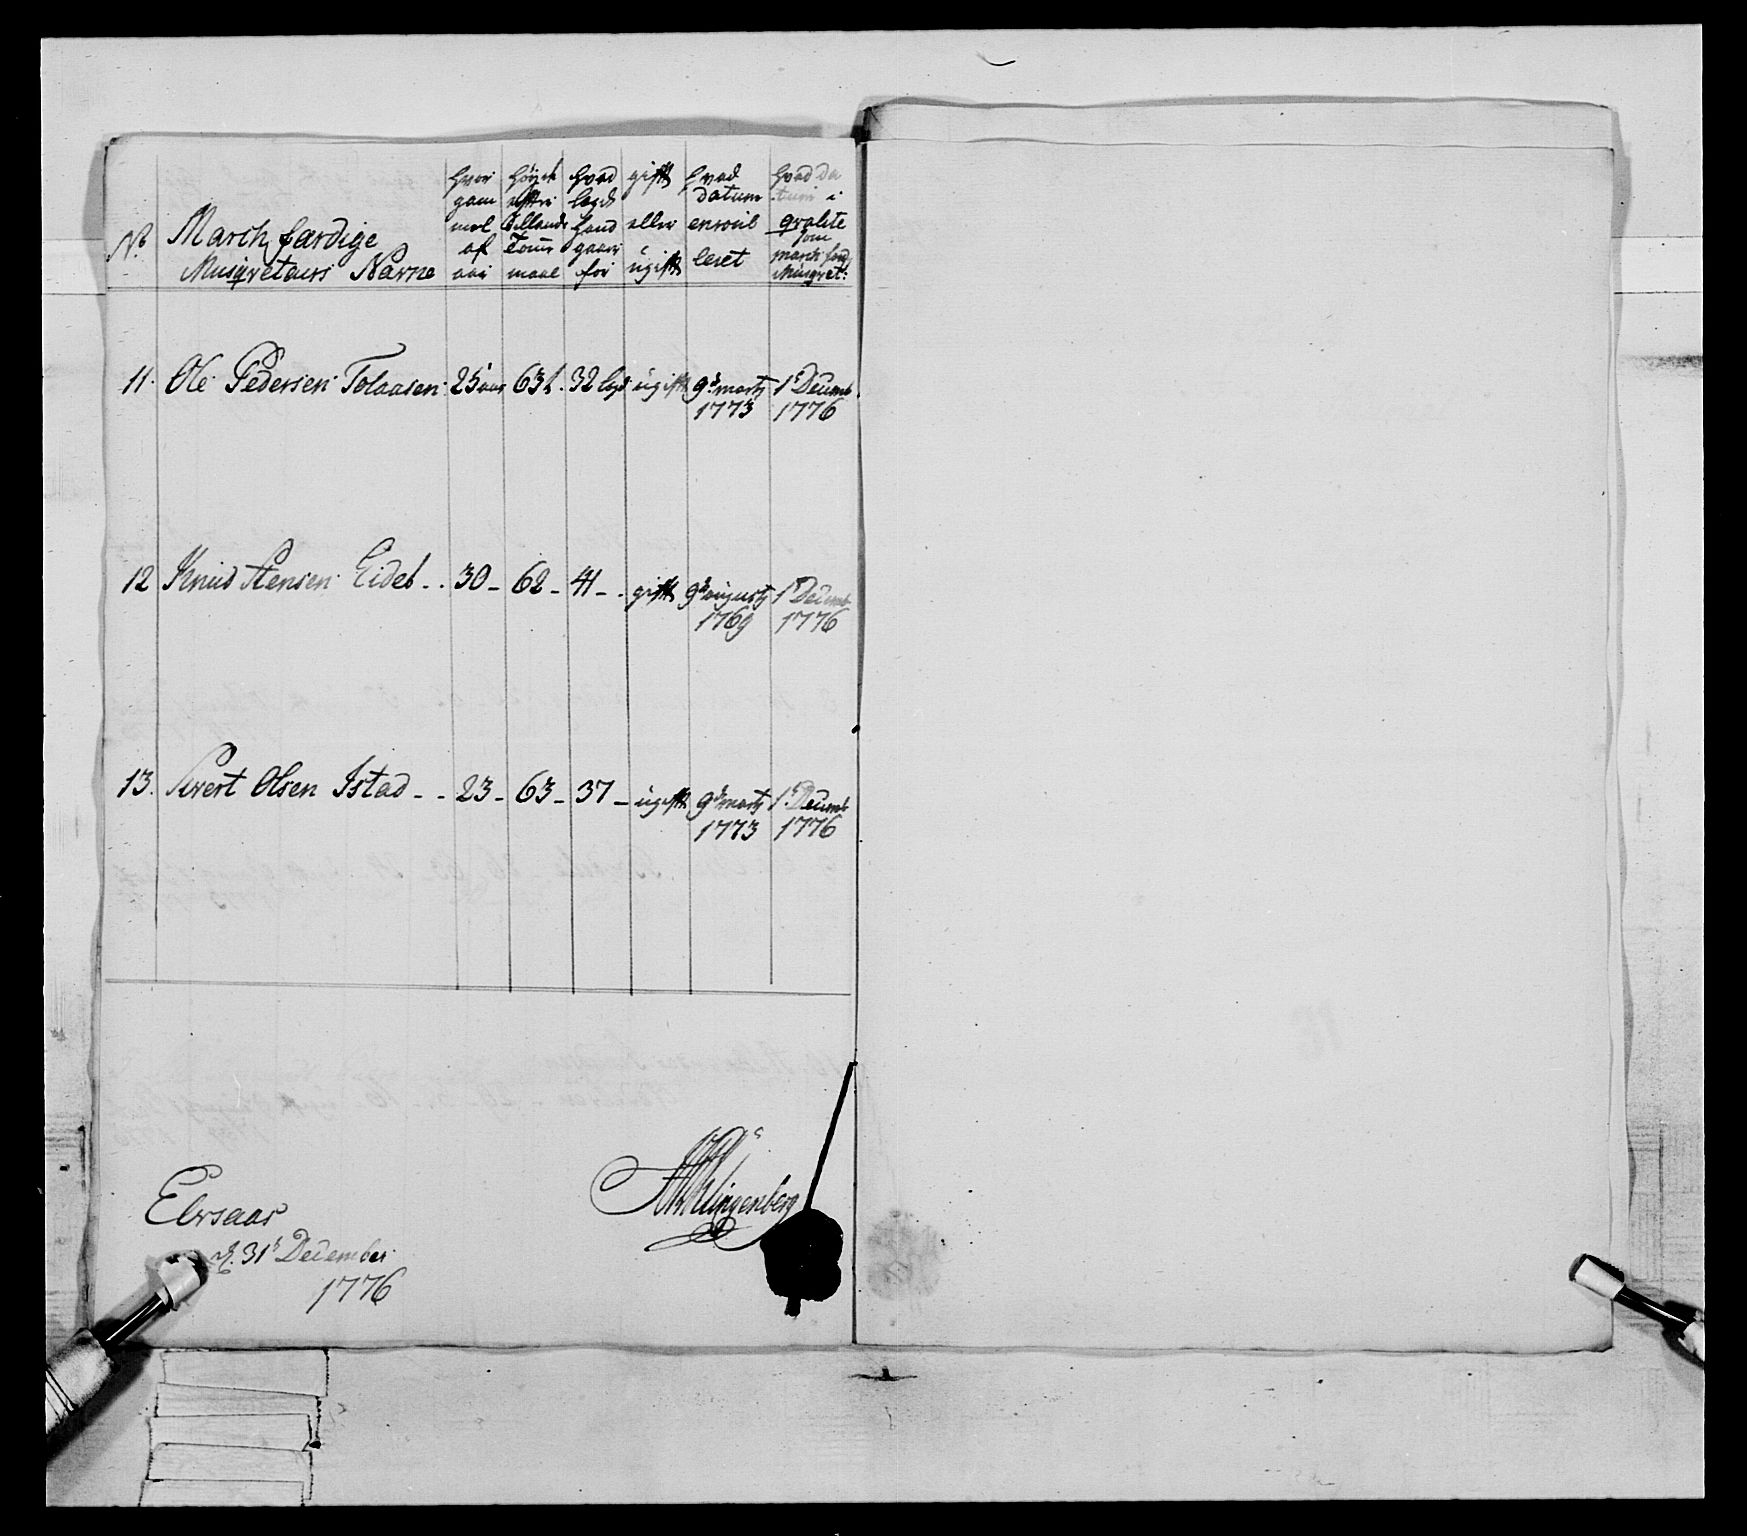 No. March færdige Musqveteurs Navne | hvor gam mel af aar | höyde efter Sellands Tomme maal | hvad legd hand gaaer for | gift eller ugift | hvad datum enroul leret | hvad da tum i qvalite som march færd. Musqvet:
11. Ole Pedersen Tolaasen 25 aar 63 t. 32 legd ugift 9d marty 1773 1t Decemb. 1776
12 Knud Stensen Eidet - - 30 - 62 - 41 - - gift 9d augusty 1769 1t Decemb. 1776
13. Sivert Olsen Istad - - 23 - 63 - 37 - ugift 9d marty 1773 1t Decemb. 1776
Elvsaas
d. 31t December
1776
Klingenberg